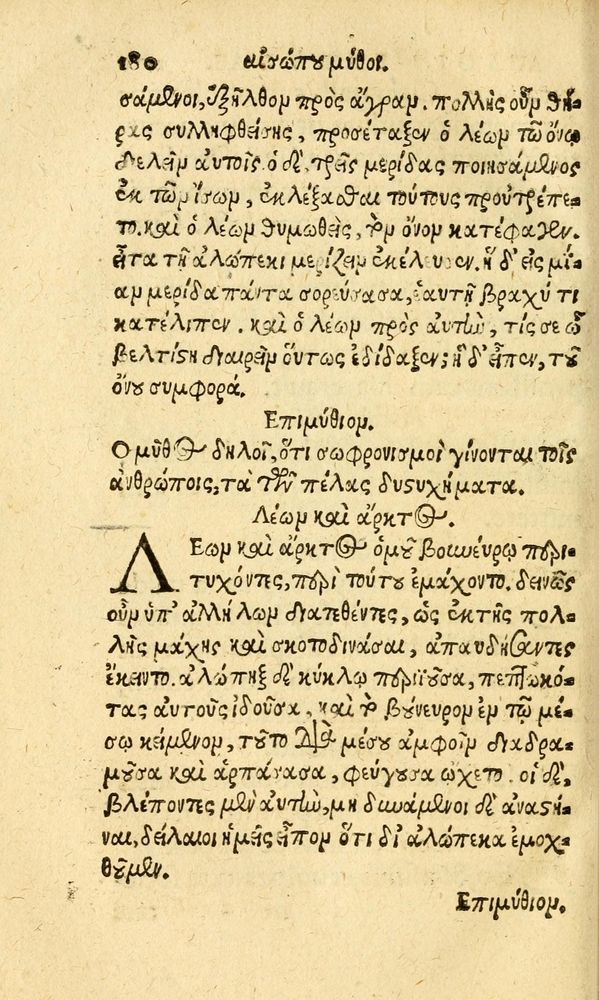 180 αἰσώπου μῦθοι.
σάμενοι, ἐξῆλθον πρὸς ἄγραν. πολλῆς οὖν θή-
ρας συλληφθείσης, προσέταξεν ὁ λέων τῷ ὄνῳ
διελεῖν αὐτοῖς. ὁ δὲ, τρεῖς μερίδας ποιησάμενος
ἐκ τῶν ἴσων, ἐκλέξασθαι τούτους προὐτρέπε-
το. καὶ ὁ λέων θυμωθεὶς, τὸν ὄνον κατέφαγεν.
εἶτα τῇ ἀλώπεκι μερίζειν ἐκέλευσεν. ἡ δ' εἰς μί-
αν μερίδα πάντα σορεύσασα, ἑαυτῇ βραχύ τι
κατέλιπεν. καὶ ὁ λέων πρὸς αὐτὴν, τίς σε ὦ
βελτίστη διαιρεῖν οὕτως ἐδίδαξεν; ἡ δ' εἶπεν, τοῦ
ὄνου συμφορά.
Επιμύθιον.
Ο μῦθος δηλοῖ, ὅτι σωφρονισμοὶ γίνονται τοῖς
ἀνθρώποις, τὰ τῶν πέλας δυστυχήματα.
Λέων καὶ ἄρκτος.
ΛΕων καὶ ἄρκτος ὁμοῦ βοὶ νεύρῳ περι-
τυχόντες, περὶ τούτου ἐμάχοντο. δεινῶς
οὖν ὑπ' ἀλλήλων διατεθέντες, ὡς ἐκ τῆς πολ-
λῆς μάχης καὶ σκοτοδινάσαι, ἀπαυδήσαντες
ἔκειντο. ἀλώπηξ δὲ κύκλῳ περιϊοῦσα, πεπτωκό-
τας αὐτοὺς ἰδοῦσα, καὶ τὸ βούνευρον ἐν τῷ μέ-
σῳ κείμενον, τοῦτο διὰ μέσου ἀμφοῖν διαδρα-
μοῦσα καὶ ἁρπάσασα, φεύγουσα ᾤχετο. οἱ δὲ,
βλέποντες μὲν αὐτὴν, μὴ δυνάμενοι δὲ ἀναστῆ-
ναι, δείλαιοι ἡμεῖς εἶπον ὅτι δι' ἀλώπεκα ἐμοχ-
θοῦμεν.
Επιμύθιον.